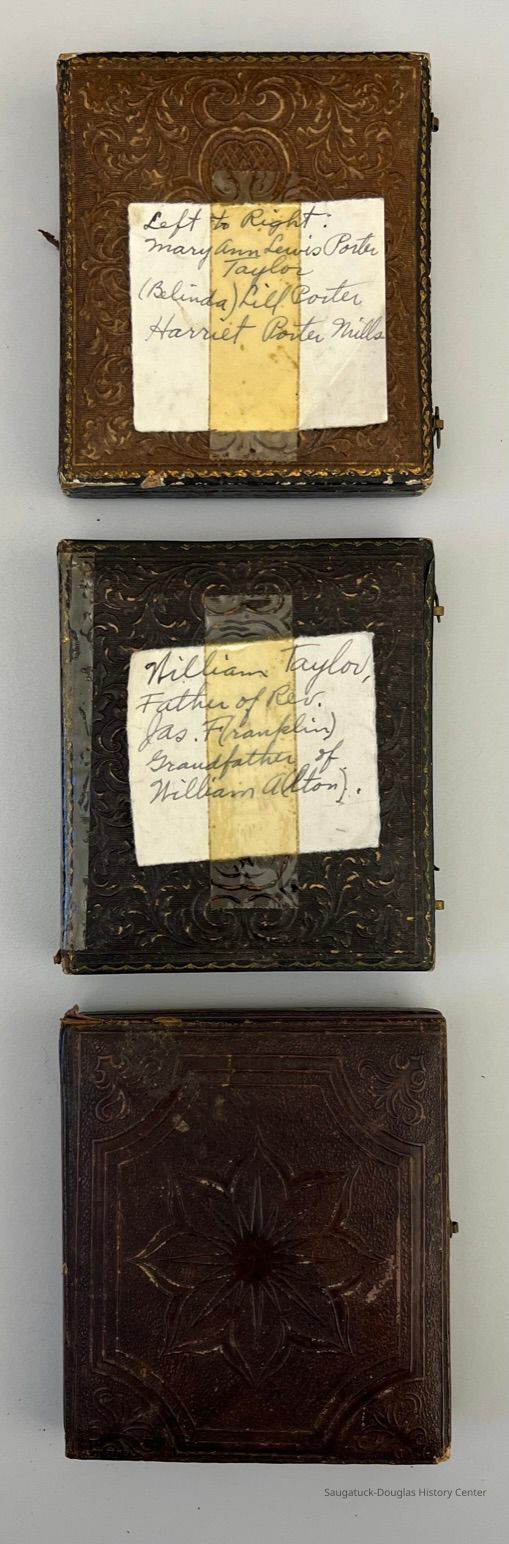 Left to Right:
Mary Ann Lewis Porter
Taylor
(Belinda) Lill Porter
Harriet Porter Mills
William Taylor,
Father of Rev.
Jas. F(ranklin)
Grandfather of
William A(lton).
Saugatuck-Douglas History Center